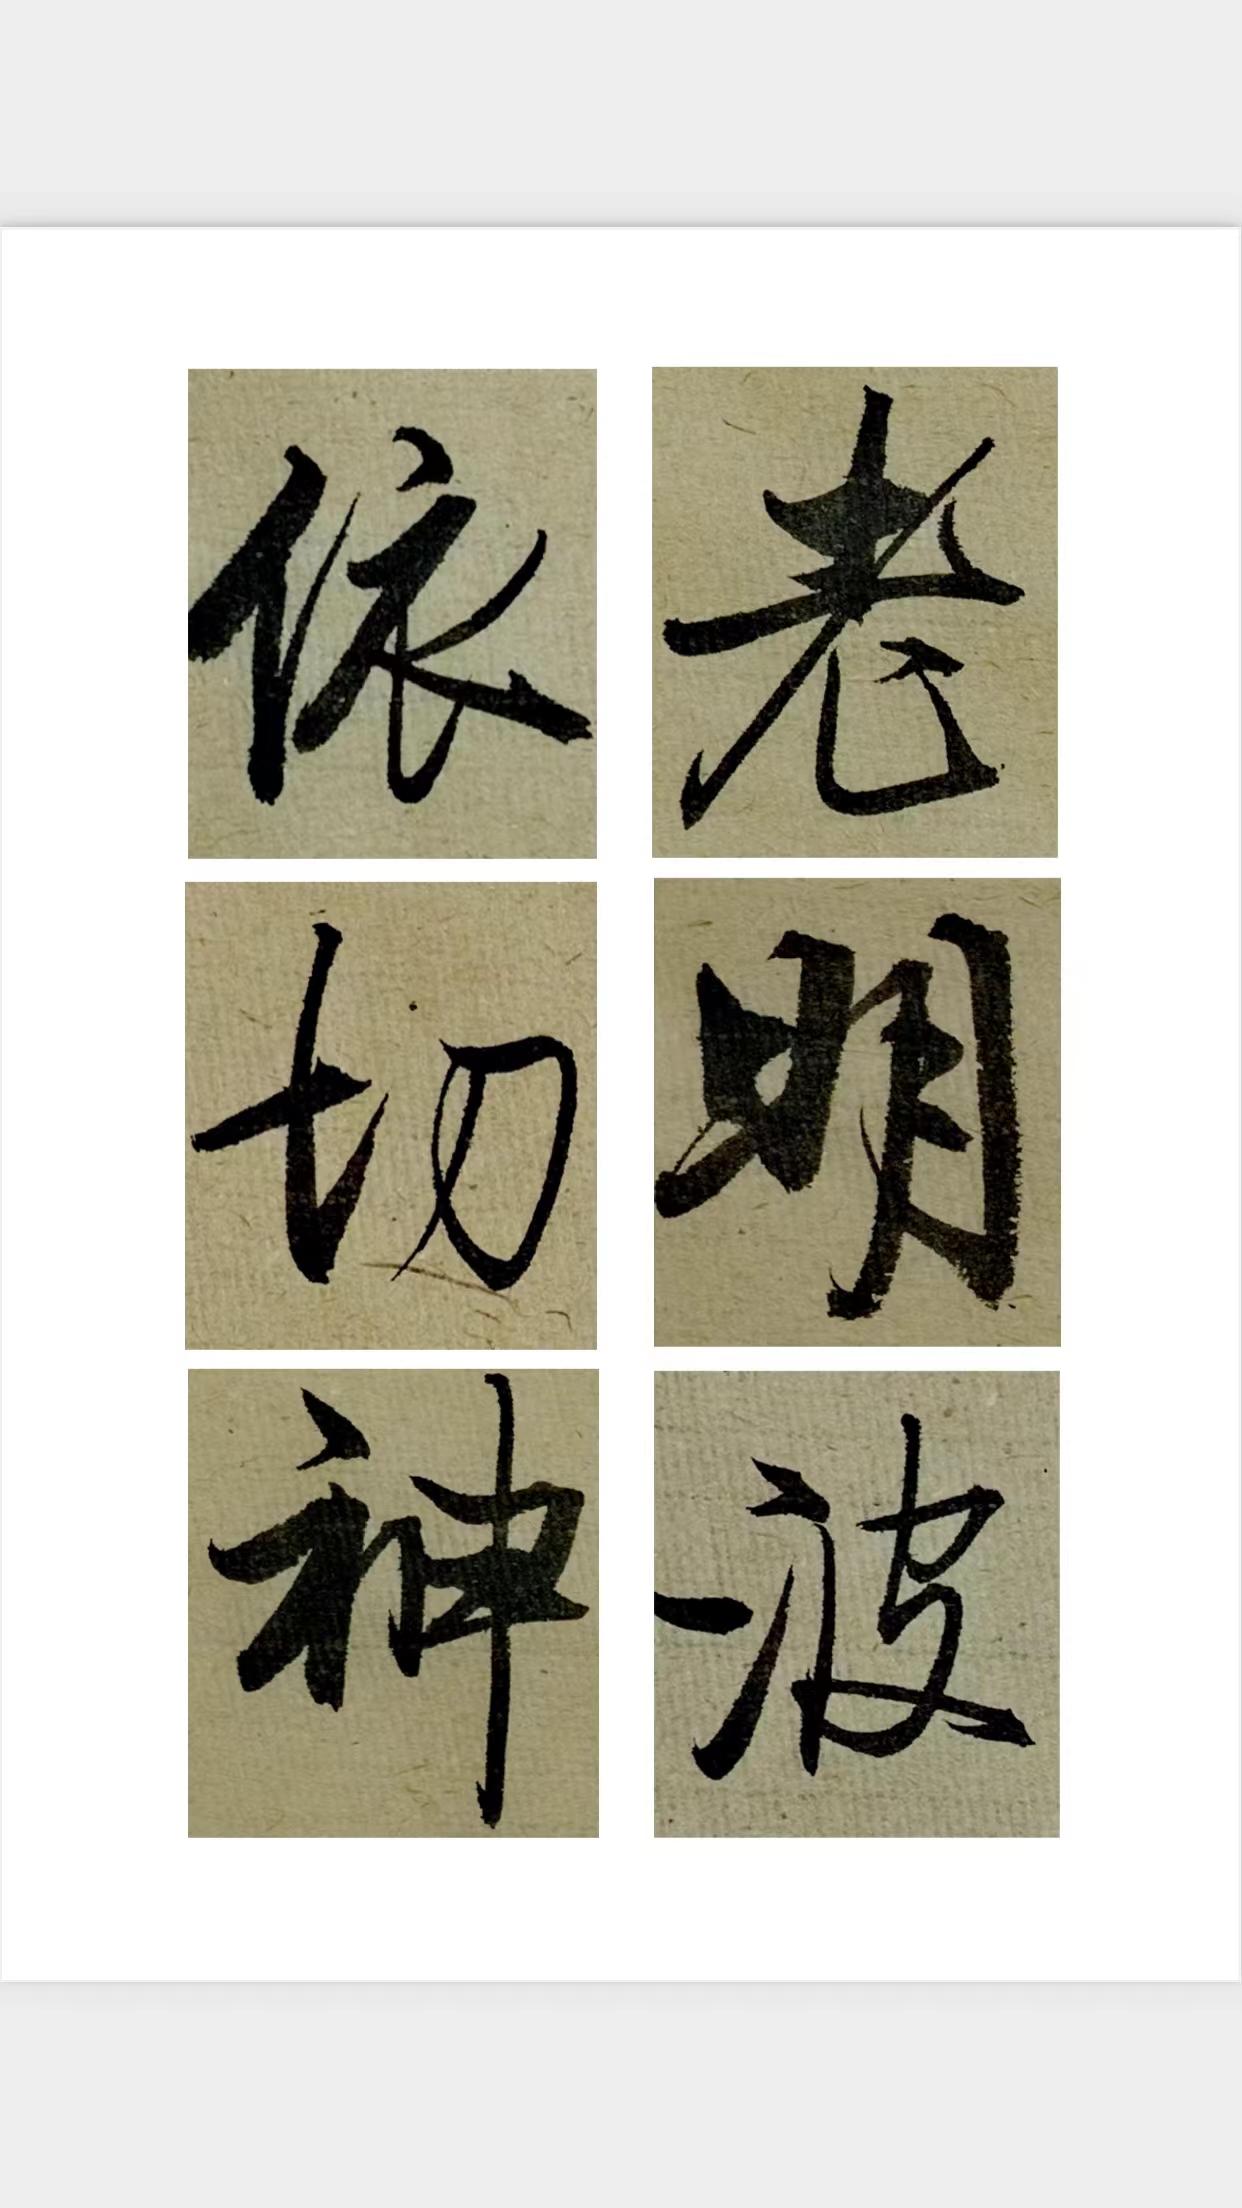 老明波
依切神